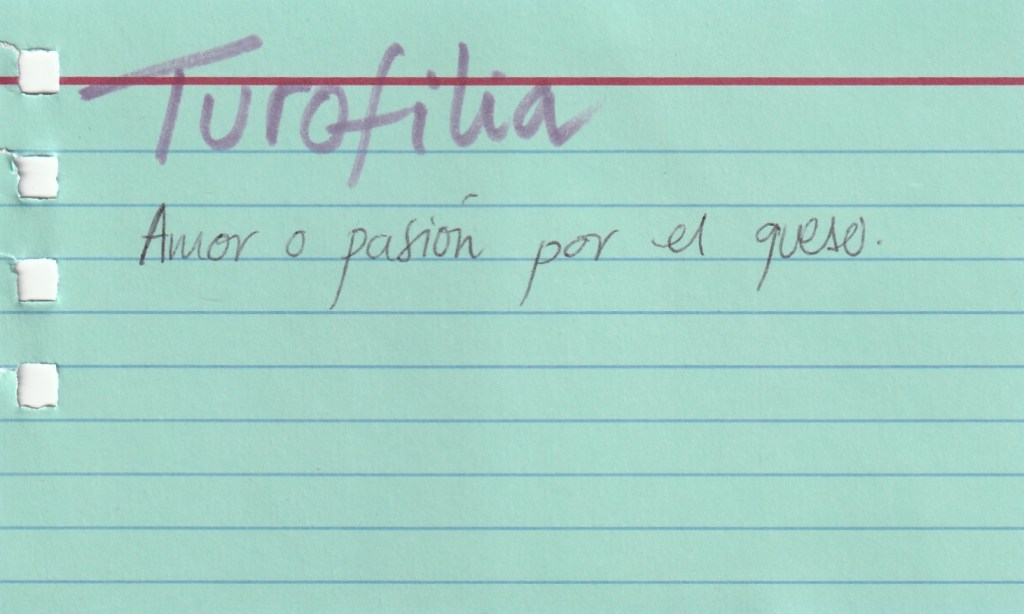 Turofilia
Amor o pasión por el queso.